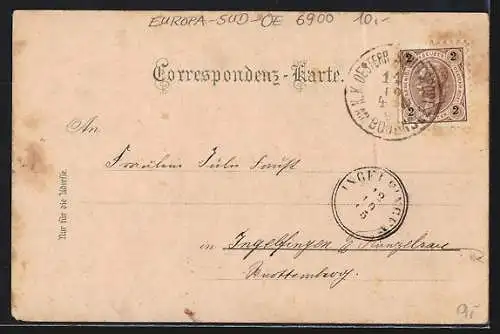 EUROPA-SÜD-OE 6900 10.-
Correspondenz-Karte.
2 2
2 2
K.K. OESTERR.
11
12
BODENSEE
An
Fräulein Julie
INGELFINGEN
12
12
5
Nur für die Adresse.
in Ingelfingen b/ Künzelsau
Württemberg.
9.-